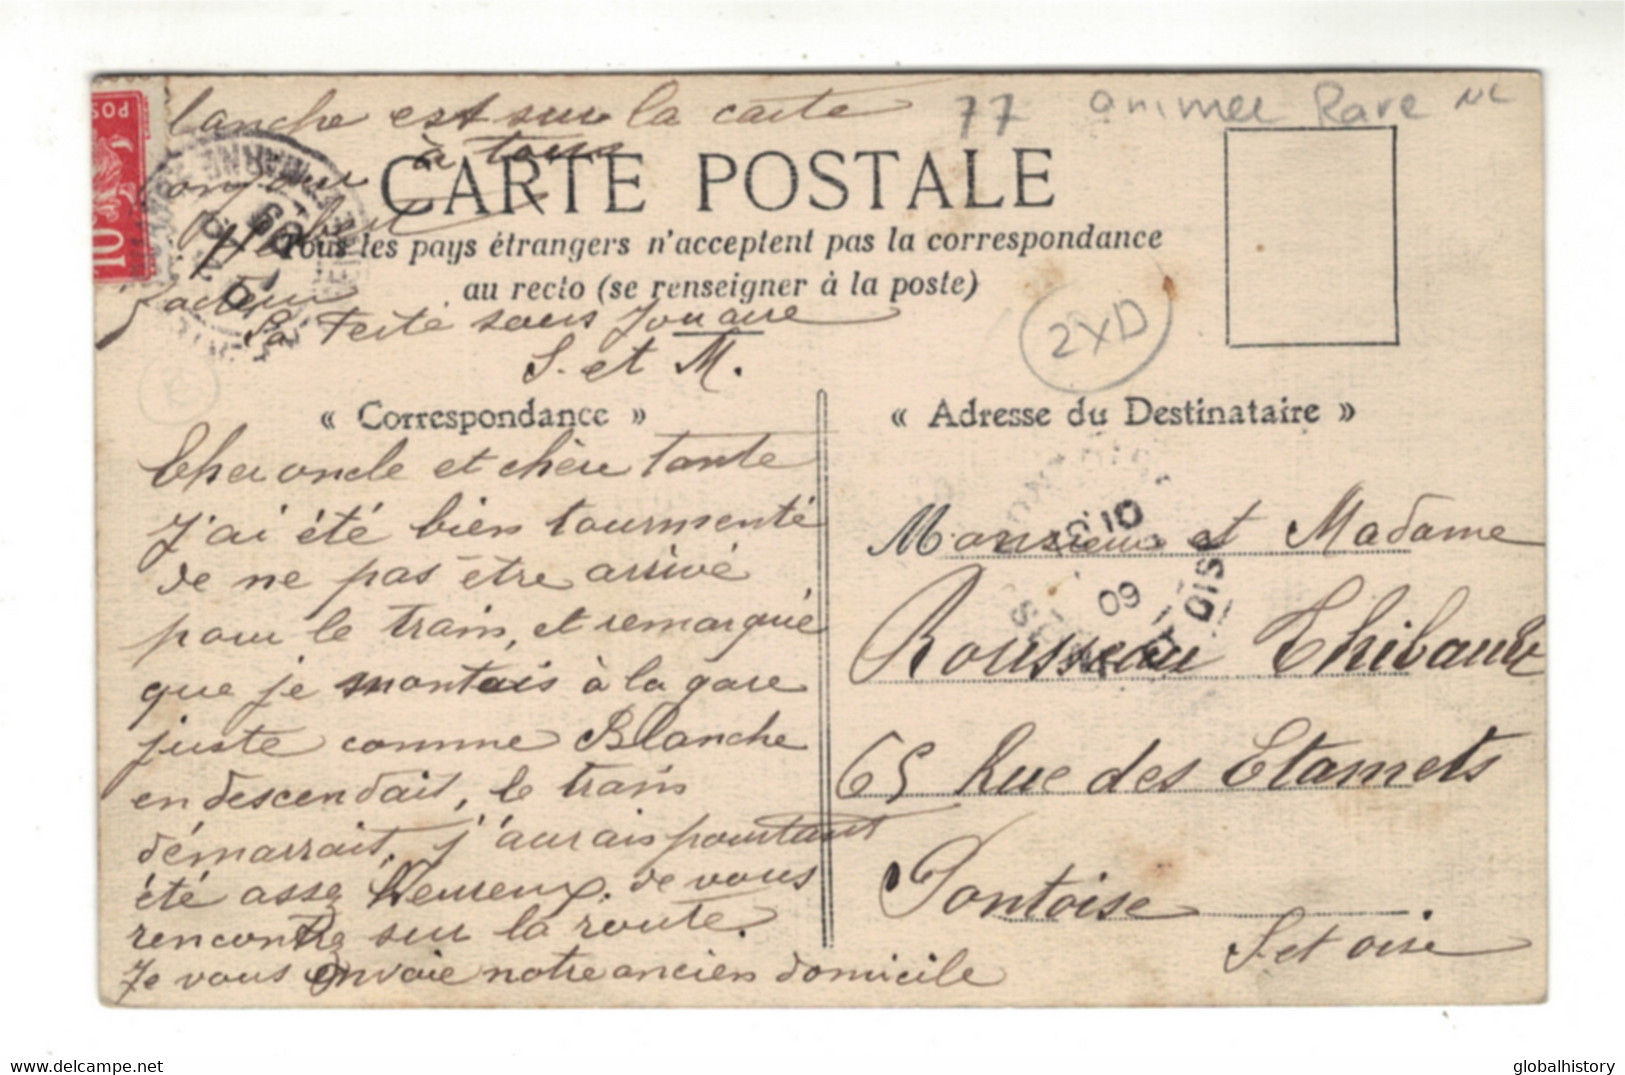 77 animee Rare NL
lanche est sur la carte
à tous
CARTE POSTALE
Tous les pays étrangers n'acceptent pas la correspondance
au recto (se renseigner à la poste)
facteur
La Ferté sous Jouarre
S. et M.
2XD
10
POS
« Correspondance »
Cher oncle et chère Tante
J'ai été bien tourmenté
de ne pas être arrivé
pour le train, et remarqué
que je montais à la gare
juste comme Blanche
en descendait, le train
démarrait, j'aurais pourtant
été assez heureux de vous
rencontre sur la route.
Je vous envoie notre ancien domicile
« Adresse du Destinataire »
10
09
Monsieur et Madame
Rousseau Thibault
65 Rue des Etamets
Pontoise
S et oise
globalhistory